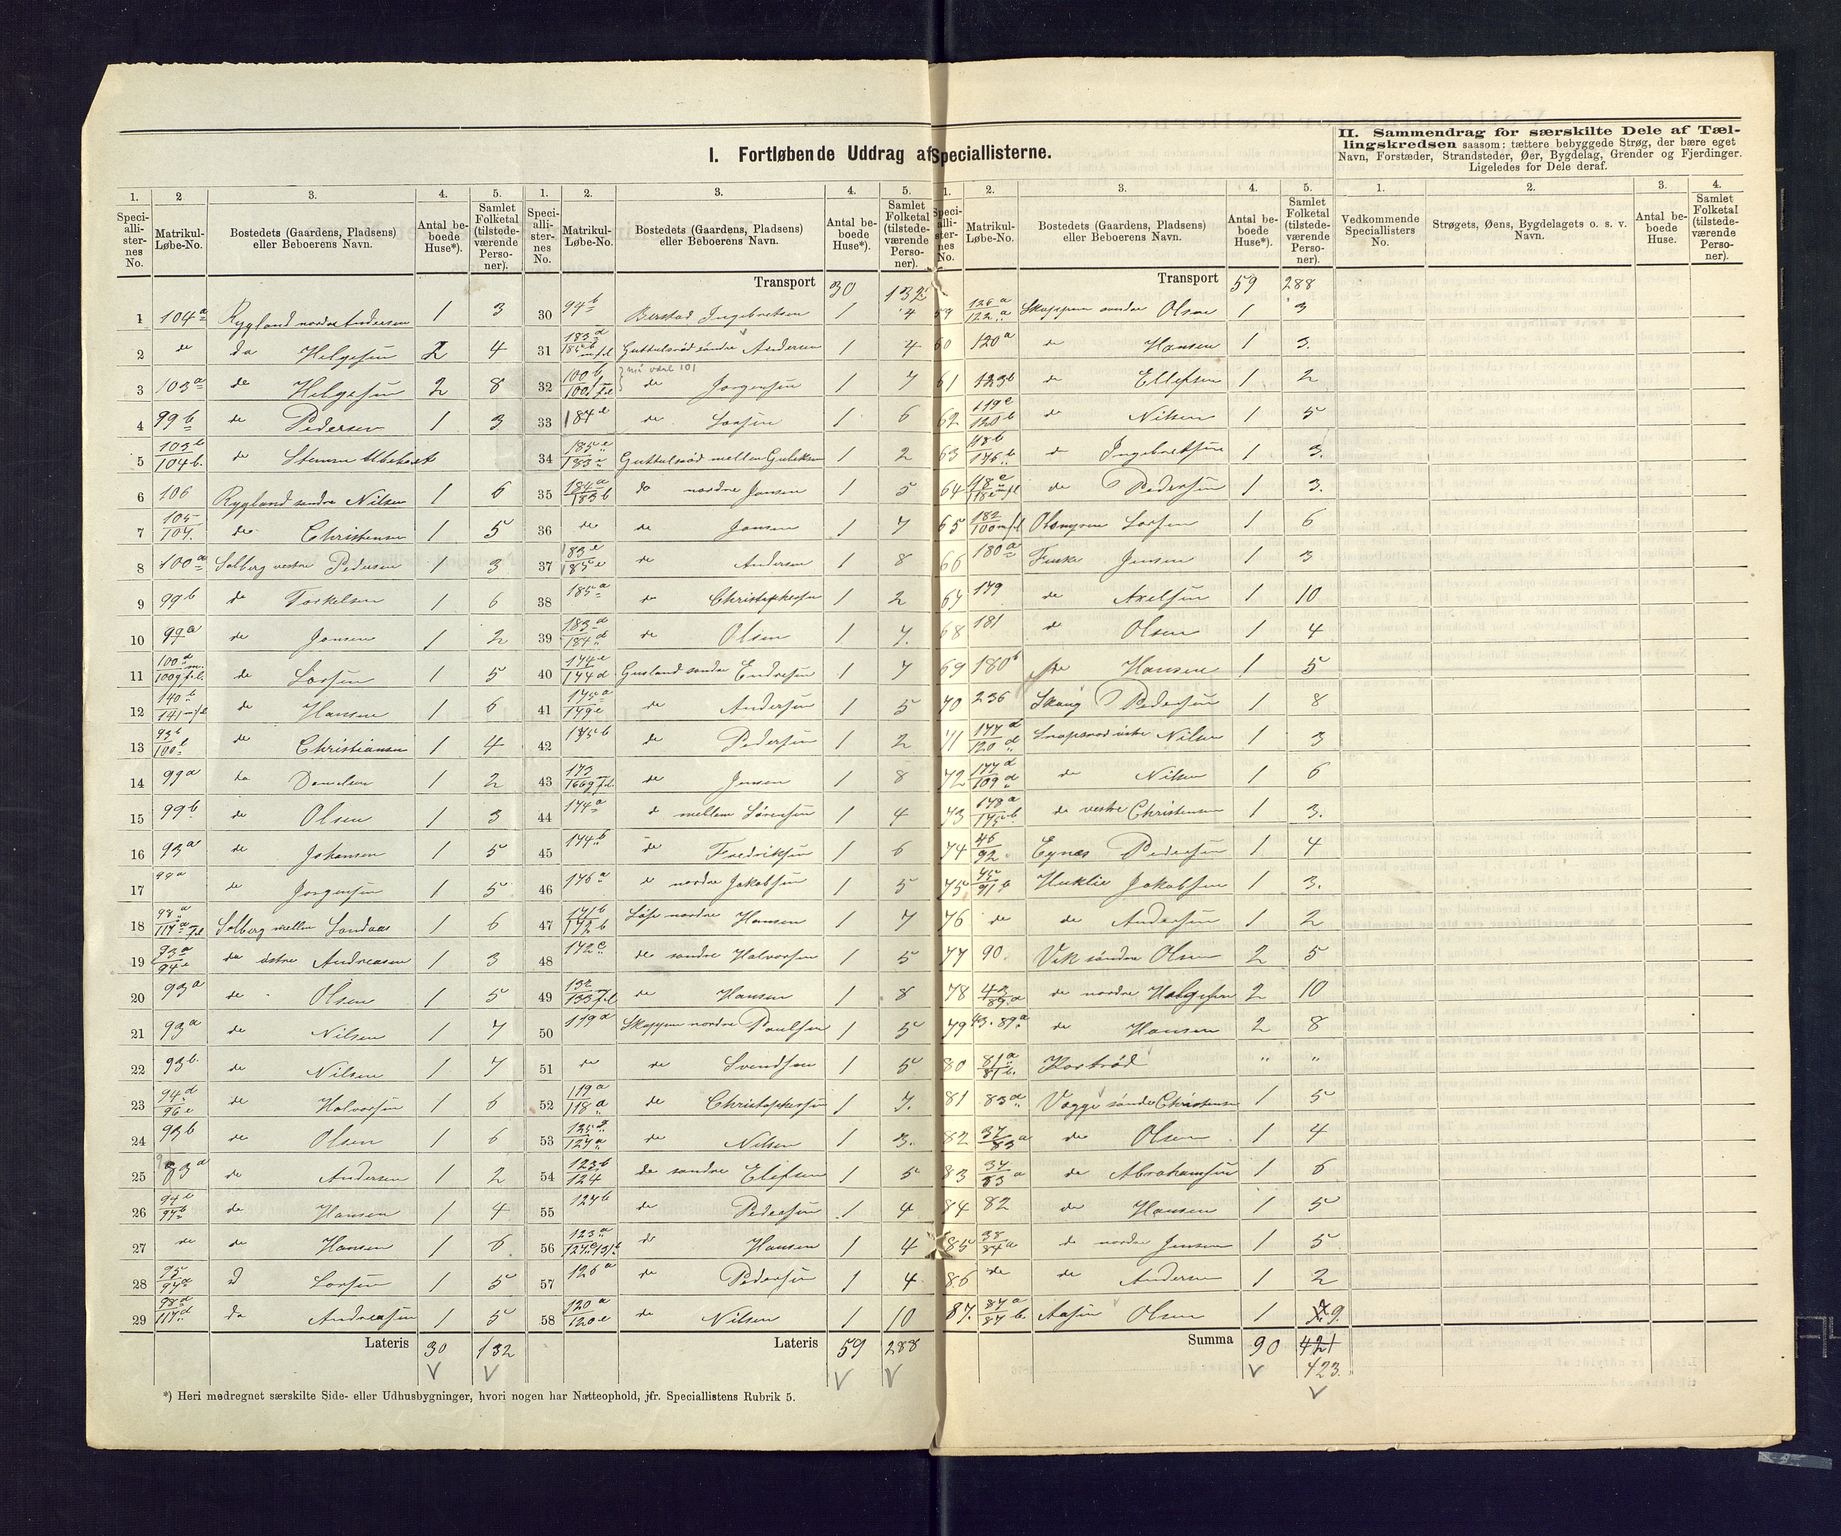 I. Fortløbende Uddrag af Speciallisterne.
II. Sammendrag for særskilte Dele af Tæl-
lingskredsen saasom: tættere bebyggede Strøg, der bære eget
Navn, Forstæder, Strandsteder, Øer, Bygdelag, Grender og Fjerdinger.
Ligeledes for Dele deraf.
1. 2 3. 4. 5.
Speci-allister-nes No. Matrikul-Løbe-No. Bostedets (Gaardens, Pladsens) eller Beboerens Navn. Antal be-boede Huse*). Samlet Folketal (tilstede-værende Perso-ner).
1 104a Rygland nordre Andersen 1 3
2 do do Helgesen 2 4
3 103a do Helgesen 2 8
4 99b do Pedersen 1 3
5 103b/104b. do Stemm Ubeboet
6 106 Rygland søndre Nilsen 1 6
7 105/104. do Christensen 1 5
8 100a Solberg vestre Pedersen 1 3
9 99b do Torkelsen 1 6
10 99a do Jansen 1 2
11 do Larsen 1 5
12 140b/141 m/fl do Hansen 1 6
13 93b/100b do Christiansen 1 4
14 99a do Danielsen 1 2
15 99b do Olsen 1 3
16 93a do Johansen 1 5
17 99a do Jørgensen 1 5
18 98a/117a f.l Solberg mellem Landaas 1 6
19 93a/94e do østre Andreasen 1 3
20 93a do Olsen 1 5
21 93a do Nilsen 1 7
22 93b. do Nilsen 1 7
23 94d/96e do Halvorsen 1 6
24 93b do Olsen 1 6
25 93a do Andersen 1 2
26 94b/97b do Hansen 1 4
27 do do Hansen 1 6
28 95/94a d Larsen 1 5
29 98d/117d do Andreasen 1 5
Lateris 30 132
1. 2. 3. 4. 5.
Speci-allister-nes No. Matrikul-Løbe-No. Bostedets (Gaardens, Pladsens) eller Beboerens Navn. Antal be-boede Huse*). Samlet Folketal (tilstede-værende Perso-ner).
Transport 30 132
30 94b Berstad Ingebretsen 1 4
31 183d/185b m/fl Guttulsrød søndre Andersen 1 4
32 100b/100f f.l do Jørgensen 1 7
33 184e do Larsen 1 6
34 185e/183c Guttulsrød mellem Guliksen 1 2
35 184a/183b do nordre Jansen 1 5
36 do do Jansen 1 7
37 183e/185e do Andersen 1 8
38 185a do Christophersen 1 2
39 183d/184d do Olsen 1 7.
40 174e/174d Gusland søndre Endresen 1 7
41 175a/179e do Andersen 1 5
42 175b do Pedersen 1 2
43 do Jensen 1 8
44 174a d mellem Sørensen 1 4
45 174b do Fredriksen 1 6
46 176a d nordre Jakobsen 1 5
47 171b/172b Løfs nordre Hansen 1 7
48 172c do søndre Halvorsen 1 5
49 132/133 f.l do Hansen 1 8
50 119d Skoppum nordre Paulsen 1 5
51 do do Svendsen 1 5
52 119a/118a do Christophersen 1 7.
53 125a/127a do Nilsen 1 3.
54 123b/124 do søndre Elefsen 1 5
55 127b do Pedersen 1 4
56 do Hansen 1 4
57 126a do Pedersen 1 4
58 120a/120e do Nilsen 1 10
Lateris 59 288
1. 2. 3. 4. 5.
Speci-allister-nes No. Matrikul-Løbe-No. Bostedets (Gaardens, Pladsens) eller Beboerens Navn. Antal be-boede Huse*). Samlet Folketal (tilstede-værende Perso-ner).
Transport 59 288
59 126a/122a Skoppum søndre Olsen 1 3
60 120a do Hansen 1 3.
61 123b do Ellefsen 1 2
62 119e/120b do Nilsen 1 5
63 118b/176b d Ingebretsen 1 3.
64 118e/118e m/fl do Pedersen 1 3.
65 182/100 m/fl Olsmyren Larsen 1 6
66 180a Fuske Jensen 1 3
67 179 do Axelsen 1 10
68 181 do Olsen 1 4
69 180b do Hansen 1 5
70 236 Skaug Pedersen 1 8
71 177d/120d Snapsrød østre Nilsen 1 3
72 177d/109d do Nilsen 1 6
73 178a/175b do vestre Christensen 1 3.
74 46/92. Eynæs Pedersen 1 4
75 45/91b Huklie Jakobsen 1 3.
76 do do Andersen 1 2
77 90. Vik søndre Olsen 2 5
78 43/89.a do nordre Helgesen 2 10
79 43. 89a do Hansen 2 8
80 81a/81b. Hortrød " "
81 83a Vægge søndre Christensen 1 5
82 37/83a do Olsen 1 4
83 37/83a do Abrahamsen 1 6
84 82 do Hansen 1 5
85 38/84a do nordre Jensen 1 5
86 do do Andersen 1 2
87. 87a/87b. Aasen Olsen 1 9.
Summa 90 421
423.
1. 2. 3. 4.
Vedkommende Speciallisters No. Strøgets, Øens, Bygdelagets o. s. v. Navn. Antal be-boede Huse. Samlet Folketal (tilstede-værende Perso-ner).
*) Heri medregnet særskilte Side- eller Udhusbygninger, hvori nogen har Natteophold, jfr. Speciallistens Rubrik 5.